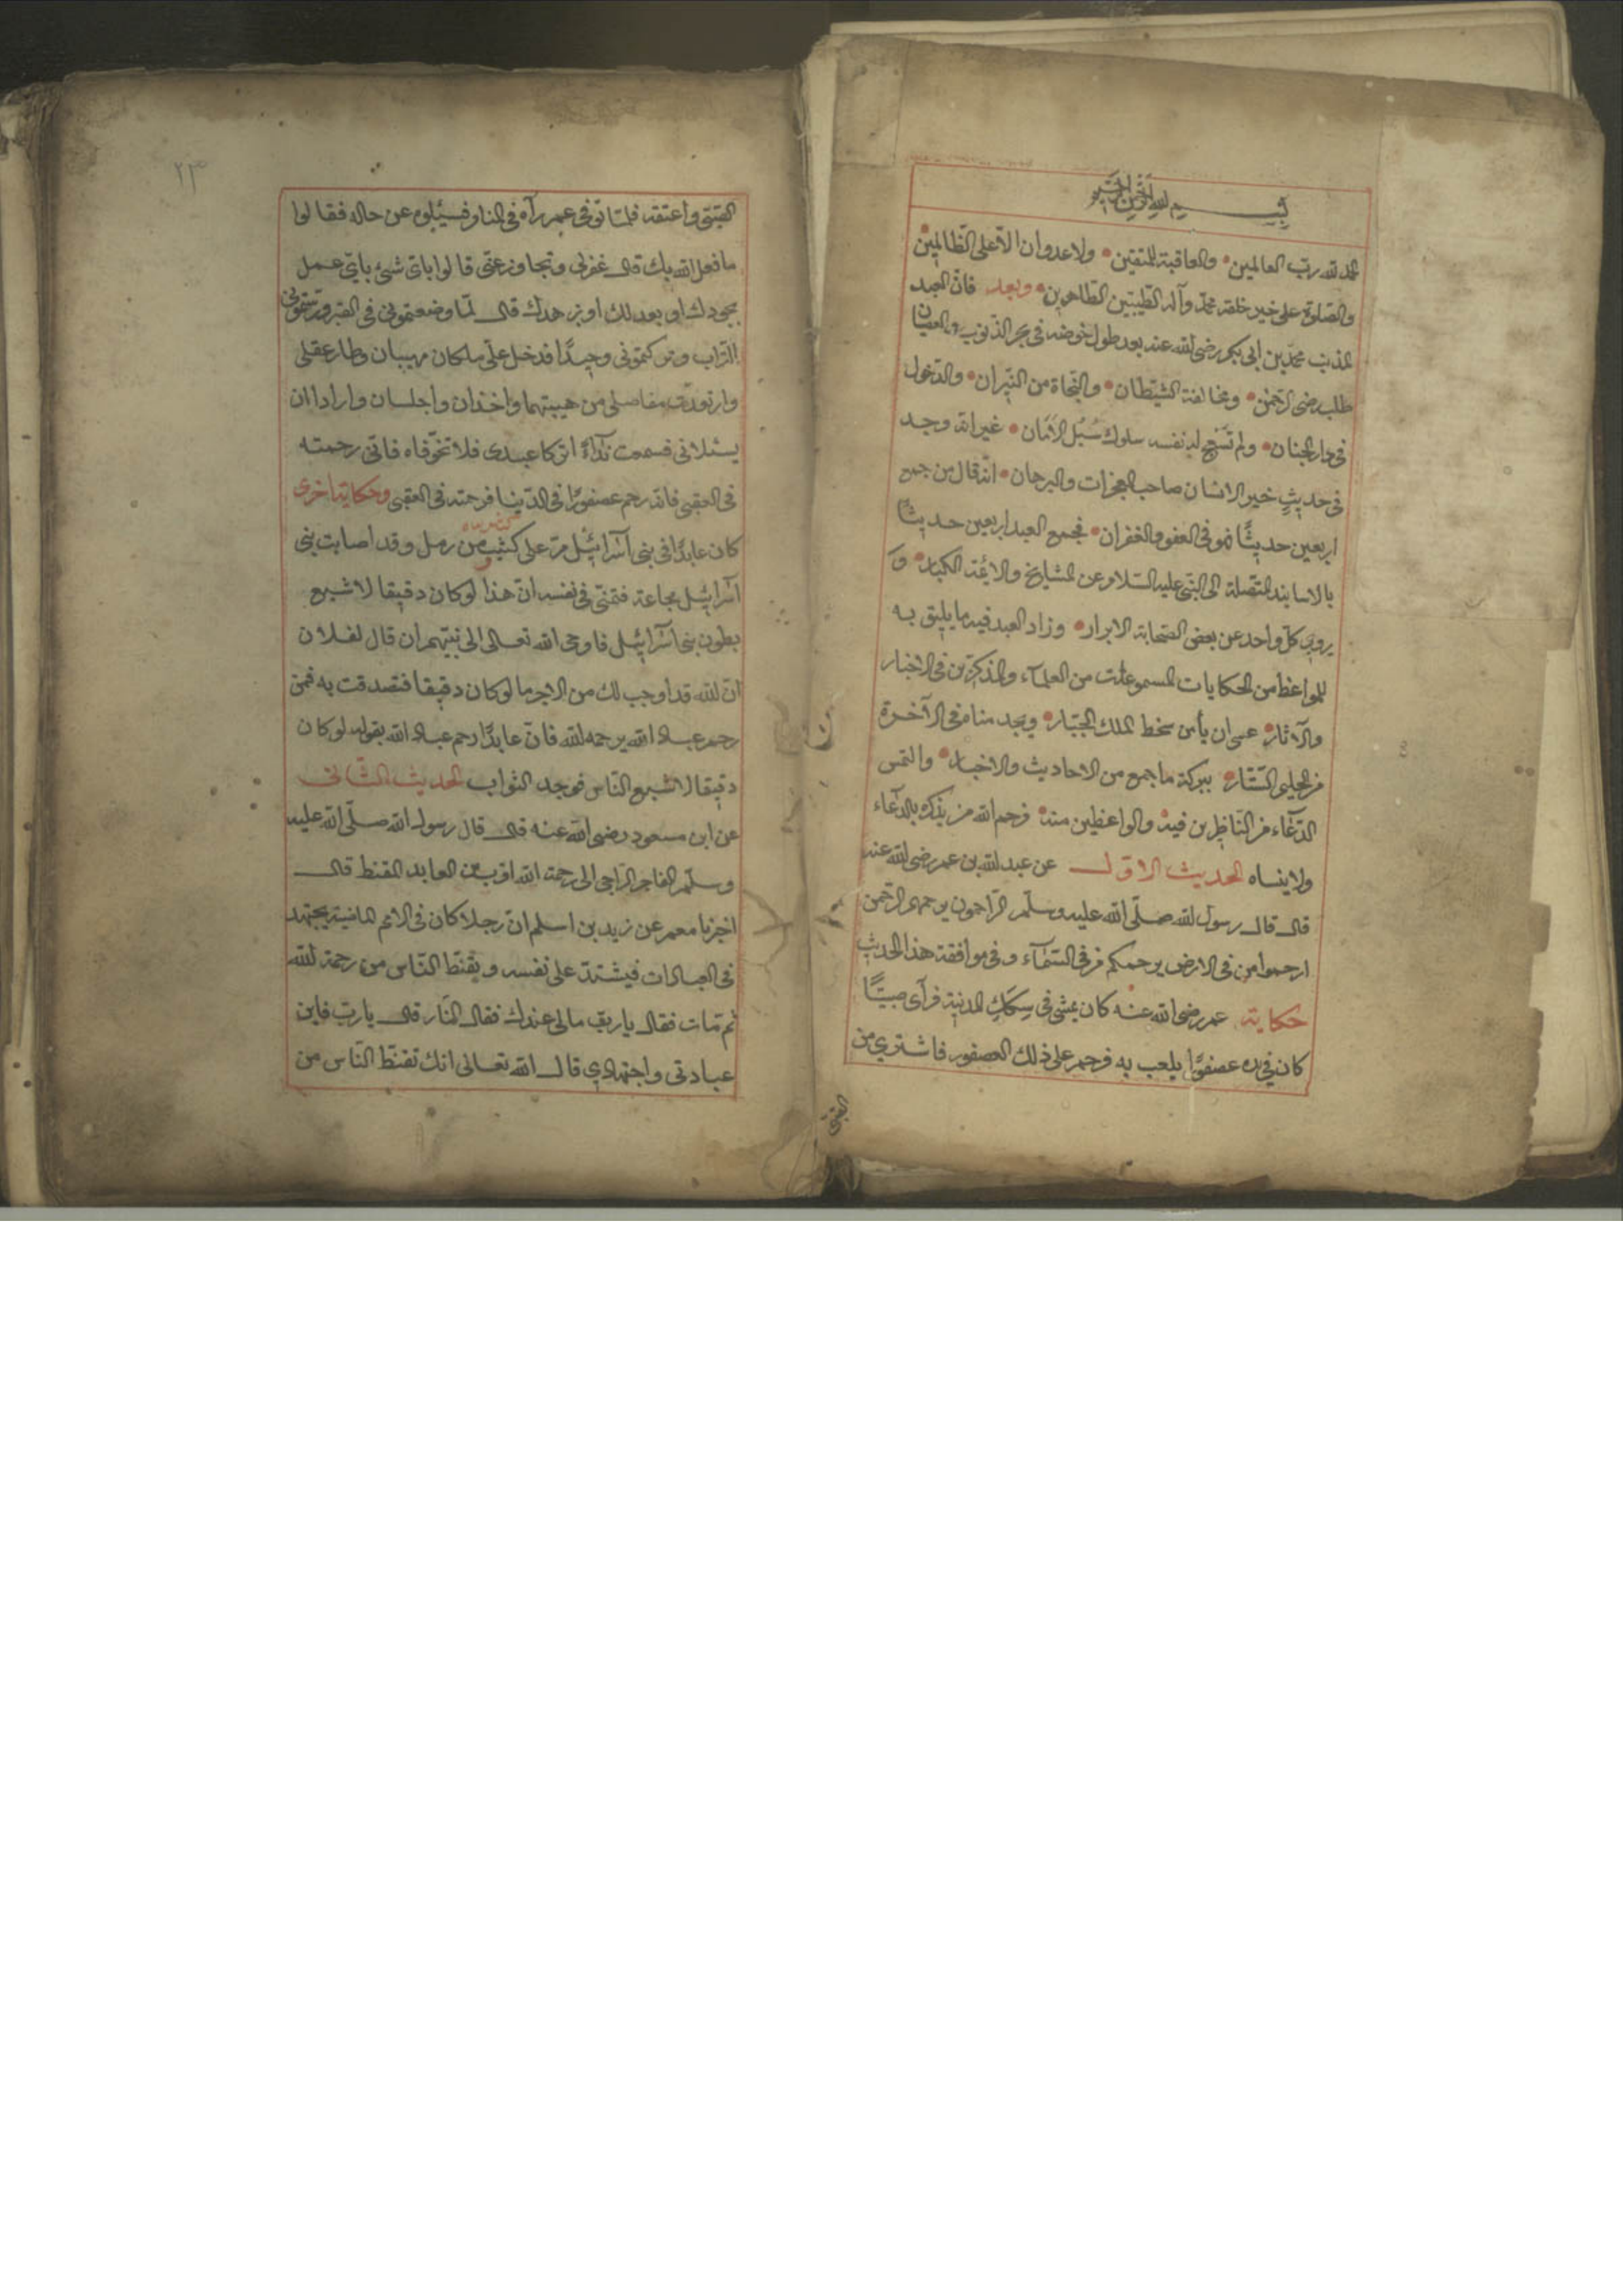 بسم الله الرحمن الرحيم
الحمد لله رب العالمين والعاقبة للمتقين ولا عدوان الا على الظالمين
والصلوة على خير خلقه محمد وآله الطيبين الطاهرين وبعد فان العبد
المذنب محمد بن ابى بكر رضى الله عنه بعد طول خوضه فى بحر الذنوب والعصيان
طلب رضى الرحمن ومخالفة الشيطان والنجاة من النيران والدخول
فى دار الجنان ولم لنفسه سلوك سُبُل الأمان غير انه وجد
فى حديثِ خير الانسان صاحب المعجزات والبرهان انه قال من جمع
اربعين حديثًا فهو فى العفو والغفران فجمع العبد اربعين حديثًا
بالاسانيد المتصلة الى النبى عليه السلام عن المشايخ والائمة الكبار و
يروى كل واحد عن بعض الصحابة الابرار وزاد العبد فيه ما يليق به
للمواعظ من الحكايات المسموعات من العلمآء والمذكرين فى الاخبار
والآثار عسى ان يأمن سخط الملك الجبار ويجد منا فى الآخرة
من الستار ببركة ما جمع من الاحاديث والاخبار والتمس
الدعاء من الناظرين فيه والواعظين منه فرحم الله من يذكره بالدعاء
ولا ينساه الحديث الاول عن عبد الله بن عمر رضى الله عنه
قال قال رسول الله صلى الله عليه وسلم الراحمون يرحمهم الرحمن
ارحموا من فى الارض يرحمكم من فى السمآء وفى موافقة هذا الحديث
حكاية عمر رضى الله عنه كان يمشى فى سِكَكِ المدينة فرآى صبيًّا
كان فى يده عصفورًا يلعب به فرحم على ذلك العصفور فاشترى من
الصبى
٢٣
الصبى واعتقه فلما توفى عمر رآه فى المنا وفسئلوه عن حاله فقالوا
ما فعل الله بك قال غفر لى وتجاوز عنى قالوا باى شئ باى عمل
بجودك او بعدلك او بزهدك قال لما وضعتمونى فى القبر وسترتمونى
التراب وتركتمونى وحيدًا فدخل علىّ ملكان مهيبان وطار عقلى
وارتعدت مفاصلى من هيبتهما واخذان واجلسان وارادا ان
يسئلانى فسمعت ندآء اتركا عبدى فلا تخوفاه فانى رحمته
فى العقبى فانه رحم عصفورًا فى الدنيا فرحمته فى العقبى وحكاية اخرى
كان عابدًا فى بنى اسرائيل مر على كثيب من رمل وقد اصابت بنى
اسرائيل مجاعة فتمنى فى نفسه ان هذا لو كان دقيقا لاشبع
بطون بنى اسرائيل فاوحى الله تعالى الى نبيهم ان قال لفلان
ان الله قد اوجب لك من الاجر ما لو كان دقيقا فتصدقت به فمن
رحم عباد الله يرحمه الله فان عابدًا رحم عباد الله بقوله لو كان
دقيقا لاشبع الناس فوجد الثواب الحديث الثانى
عن ابن مسعود رضى الله عنه قال قال رسول الله صلى الله عليه
وسلم الفاجر الراجى الى رحمة الله اقرب من العابد المقنط قال
اخبرنا معمر عن زيد بن اسلم ان رجلا كان فى الامم الماضية يجتهد
فى العبادات فيشتد على نفسه ويقنط الناس من رحمة الله
ثم مات فقال يا رب ما لى عندك فقال النار قال يا رب فاين
عبادتى واجتهادى قال الله تعالى انك تقنط الناس من